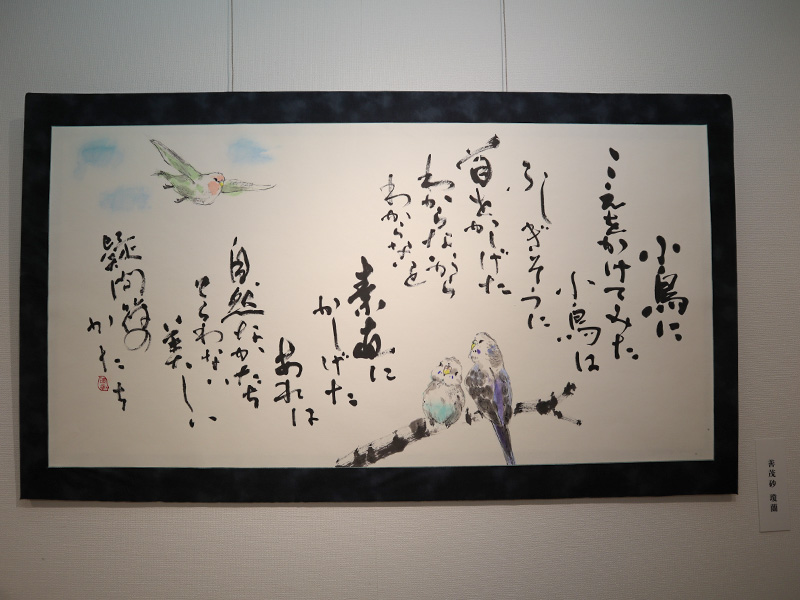 小鳥に
こえをかけてみた
小鳥は
ふしぎそうに
首をかしげた
わからないから
わからないと
素直に
かしげた
あれは
自然なかたち
とらわれない
美しい
疑問符の
かたち